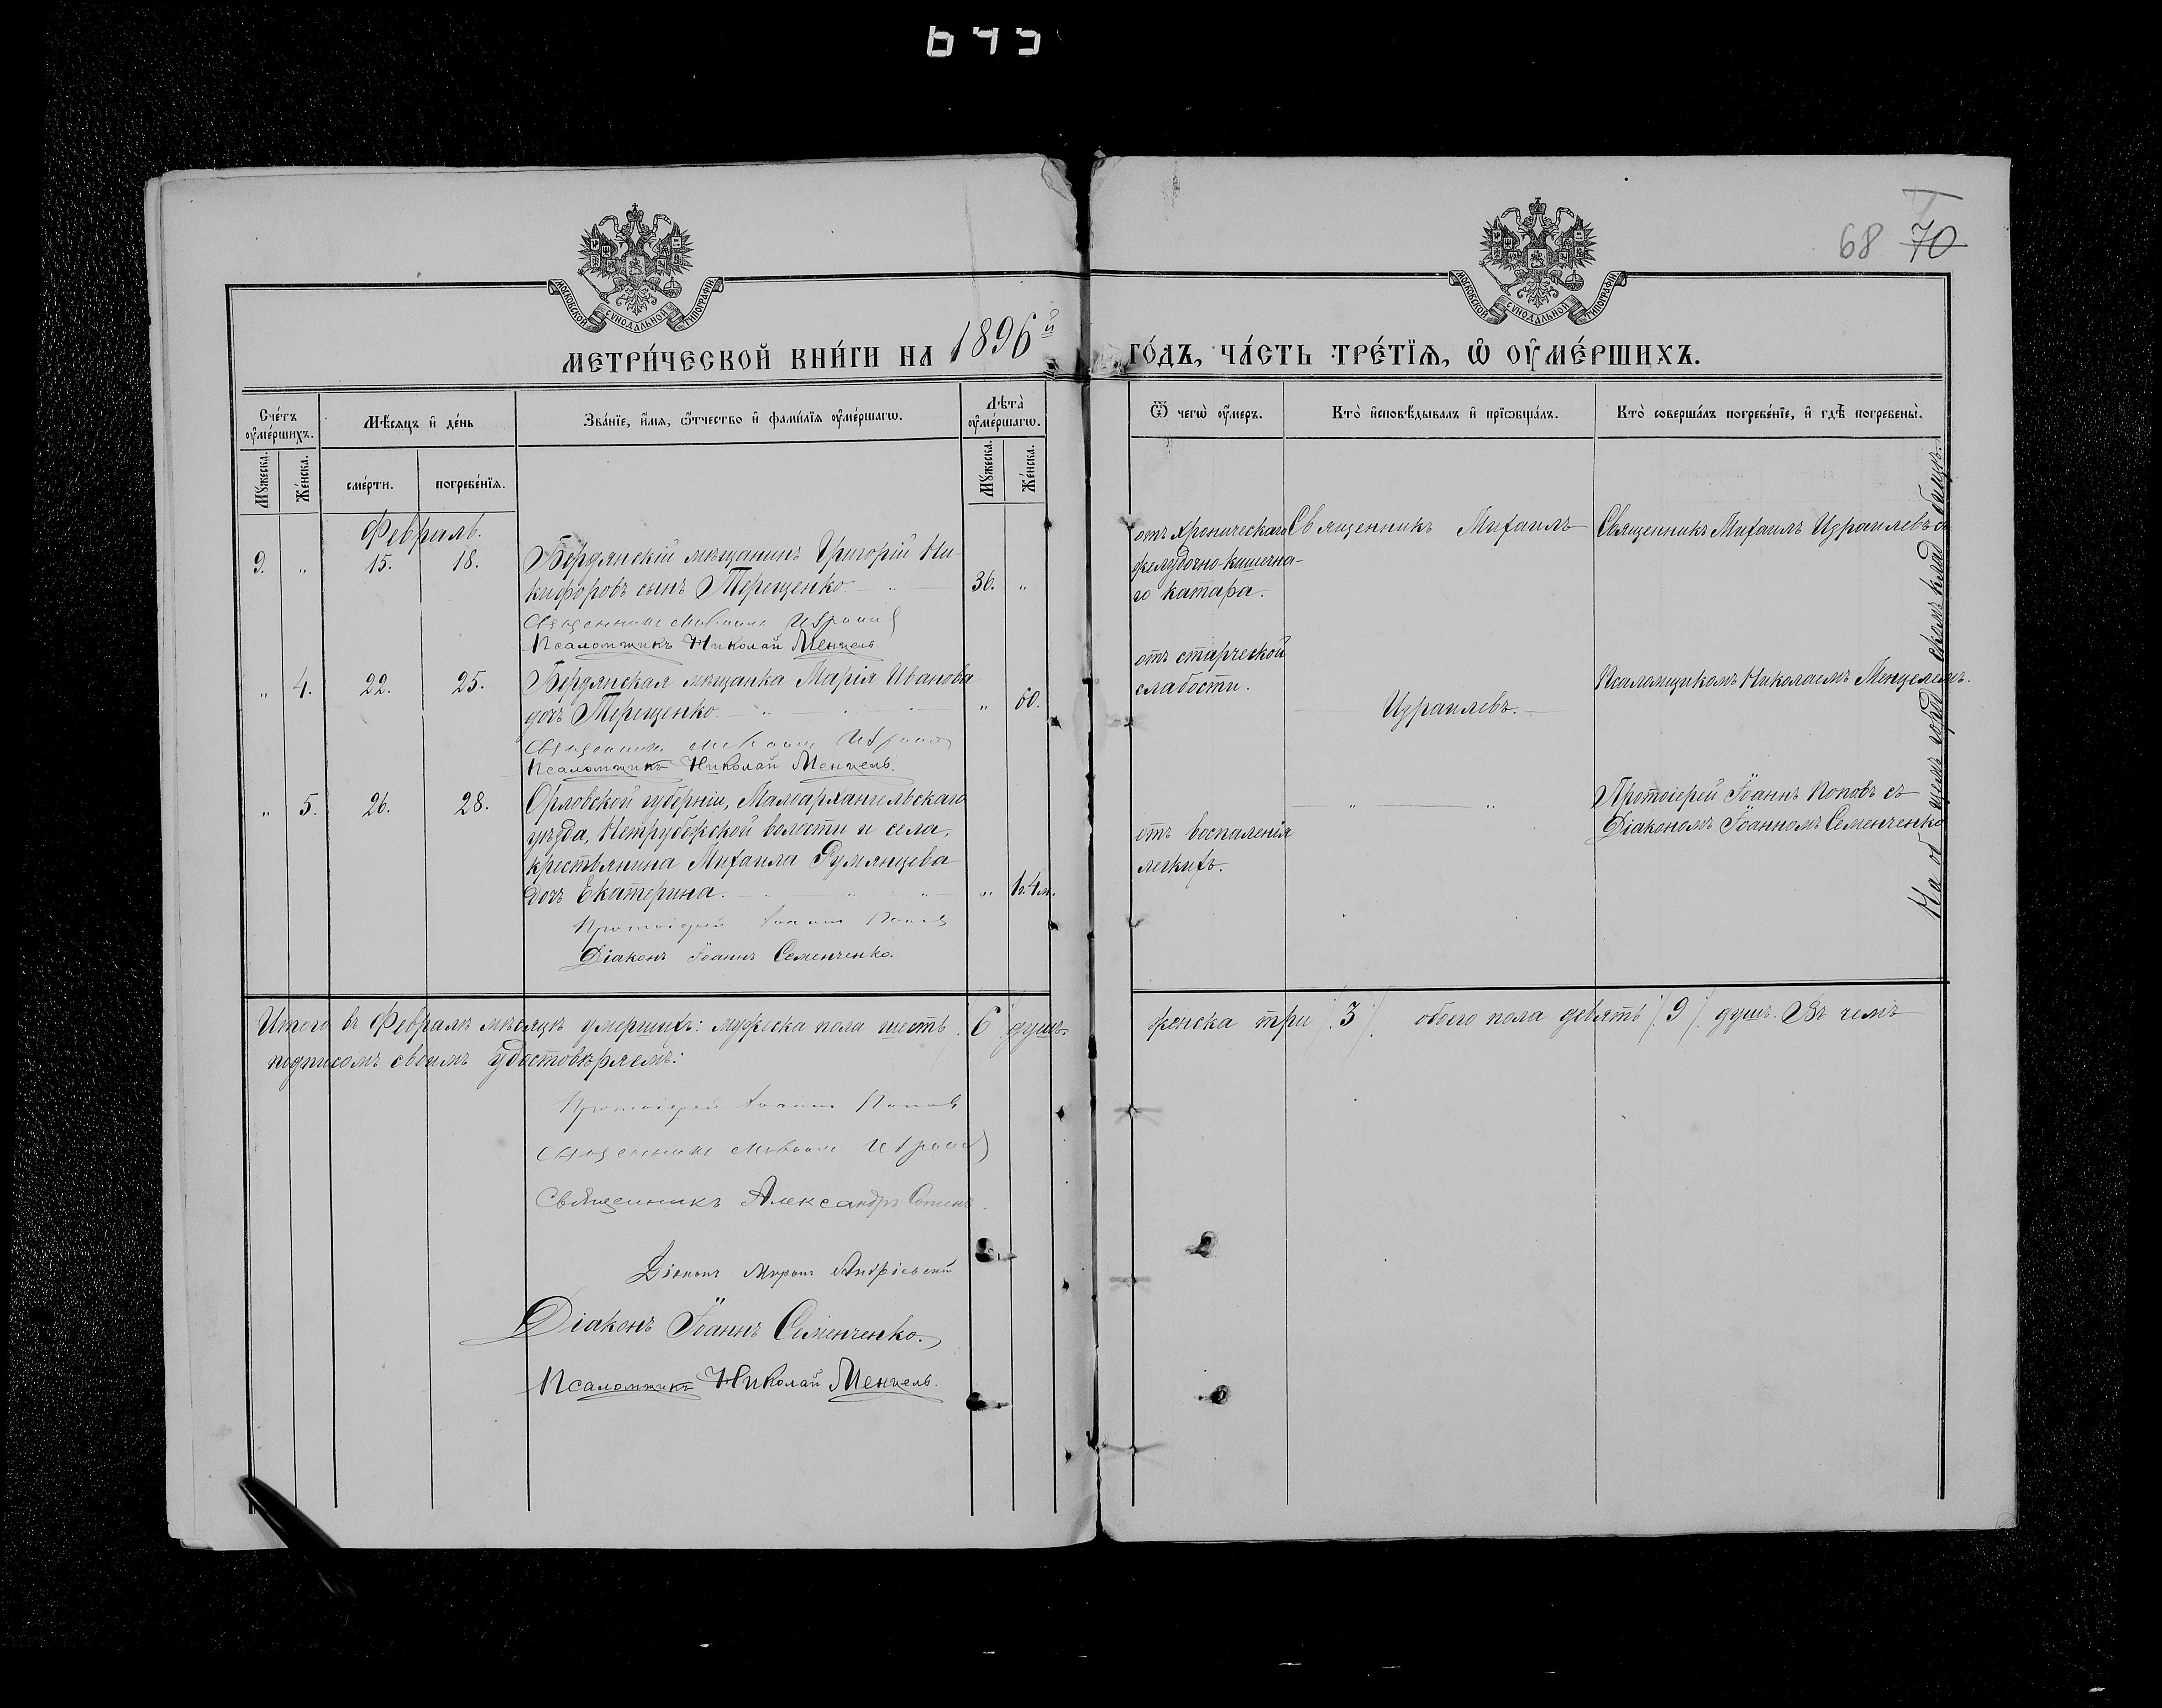 68 70
МОСКОВСКОЙ СѴНОДАЛЬНОЙ ТИПОГРАФІИ
МОСКОВСКОЙ СѴНОДАЛЬНОЙ ТИПОГРАФІИ
МЕТРИ́ЧЕСКОЙ КНИ́ГИ НА 1896й ГО́ДЪ, ЧА́СТЬ ТРЕ́ТЇѦ, Ѡ ОУМЕ́РШИХЪ.
Сче́тъ оуме́ршихъ.
Мꙋжеска.
Же́нска.
Мѣ́сѧцъ и де́нь
сме́рти.
погребе́нїѧ.
Зва́нїе, и́мѧ, ѻ́тчество и фами́лїѧ оуме́ршагѡ.
Лѣта̀ оуме́ршагѡ.
Мꙋжеска.
Же́нска.
Ѿ чегѡ̀ оу́меръ.
Кто̀ и́сповѣдывалъ и прїѡбща́лъ.
Кто̀ соверша́лъ погребе́нїе, и гдѣ̀ погребены̀.
Февраль.
9. " 15. 18. Бердянскій мѣщанинъ Григорій Ни-
кифоровъ сынъ Терещенко. 36. "
Священникъ Михаилъ Израилев
Псаломщикъ Николай Менцель.
отъ хроническаго
желудочно-кишечна-
го катара.
Священникъ Михаилъ
Священникъ Михаилъ Израилевъ съ
" 4. 22. 25. Бердянская мѣщанка Марія Иванова
дочь Терещенко. " 60.
Священникъ Михаилъ Израилев
Псаломщикъ Николай Менцель.
отъ старческой
слабости.
Израилевъ.
Псаломщикомъ Николаемъ Менцелемъ.
" 5. 26. 28. Орловской губерніи, Малоархангельскаго
уѣзда, Нетрубежской волости и села,
крестьянина Михаила Румянцева
дочь Екатерина. " 1г.4м.
Протоіерей Іоаннъ Попов
Діаконъ Іоаннъ Семенченко.
отъ воспаленія
легкихъ.
" "
Протоіерей Іоаннъ Поповъ съ
Діакономъ Іоанномъ Семенченко
На общемъ город скомъ клад бищѣ.
Итого въ Февралѣ мѣсяцѣ умершихъ: мужеска пола шесть 6 душъ женска три /3/. обоего пола девять /9/ душъ. Въ чемъ
подписомъ своимъ удостовѣряемъ:
Протоіерей Іоаннъ Попов
Священникъ Михаилъ Израилев
Священникъ Александръ
Діаконъ Миронъ Андріевскій
Діаконъ Іоаннъ Семенченко.
Псаломщикъ Николай Менцель.